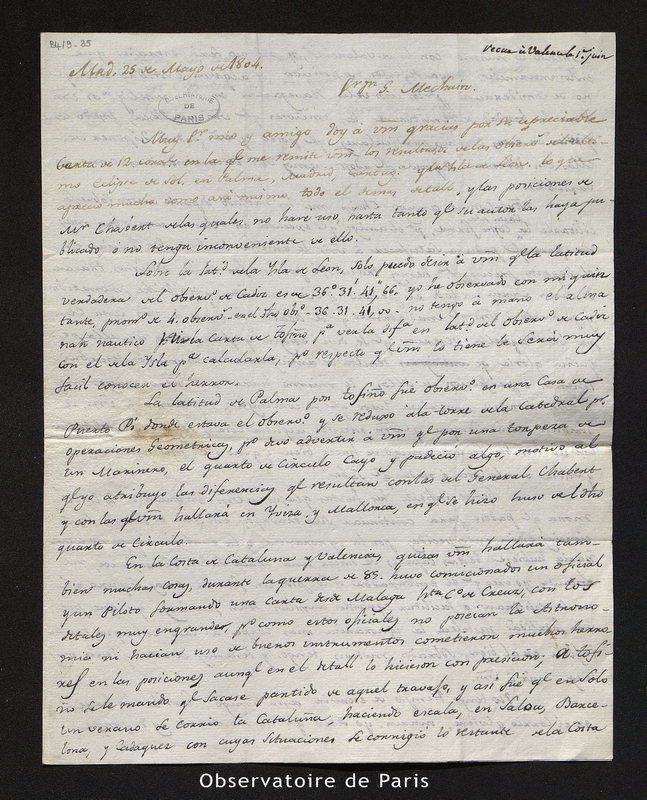 8419-35
recue à Valence le 1er juin
Mad. 25 de Mayo de 1804.
Sr Dn S. Mechain.
DE
PARIS
Muy Sr mio y amigo doy a vm gracias por su apreciable
Carta de 12 corrte en la ql me remite vm los resultados de las observs del ulti-
mo Eclipse de Sol, en Palma, Madrid, y la Ysla de Leon. lo que
aprecio mucho como asi mismo todo el demas detall, y las posiciones de
Mr Chabert de las quales no haré uso, hasta tanto ql su autor las haya pu-
blicado ó no tenga inconveniente de ello.
Sobre la latd de la Ysla de Leon, solo puedo desir à vm ql la latitud
verdadera del observo de Cadiz es de 36.° 31.' 41,"66, yo he observado con mi quin
tante, promo de 4. observs en el dho obso - 36-31-41,00. no tengo à mano el alma
nak nautico ni la Carta de tofiño pa ver la difa en latd del observo de Cadiz
con el de la Ysla pa calcularla, po respecto ql vm lo tiene le será muy
facil conocer el herror.
La latitud de Palma por tofiño fué observa en una Casa de
Puerto Pi donde estava el observo y se reduxo a la torre de la Catedral pr
operaciones Geometricas, po devo advertir à vm ql por una torpeza de
un Marinero, el quarto de Circulo Cayo y padeció algo, motivo al
ql yo atribuyo las diferencias ql resultan con las del General Chabert
y con las ql vm hallará en Yviza, y Mallorca, en ql se hizo huso del dho
quarto de Circulo.
En la Costa de Cataluña y Valencia, quizas vm hallará tam-
bien muchas cosas, durante la guerra de 83. huvo comicionados un oficial
y un Piloto formando una carta desde Malaga hta Co de Creux, con los
detalles muy en grande, po como estos oficiales no poseian la Astrono-
mia ni hacian uso de buenos instrumentos cometieron muchos herro
res en las posiciones aunql en el detall lo hicieron con presicion; a tofi-
ño se le mando ql sacase partido de aquel travajo, y asi fue ql en solo
un verano se corrio la Cataluña, haciendo escala, en Salou, Barce-
lona, y Cadaquez con cuyas situaciones se corrigió lo restante de la Costa
Observatoire de Paris